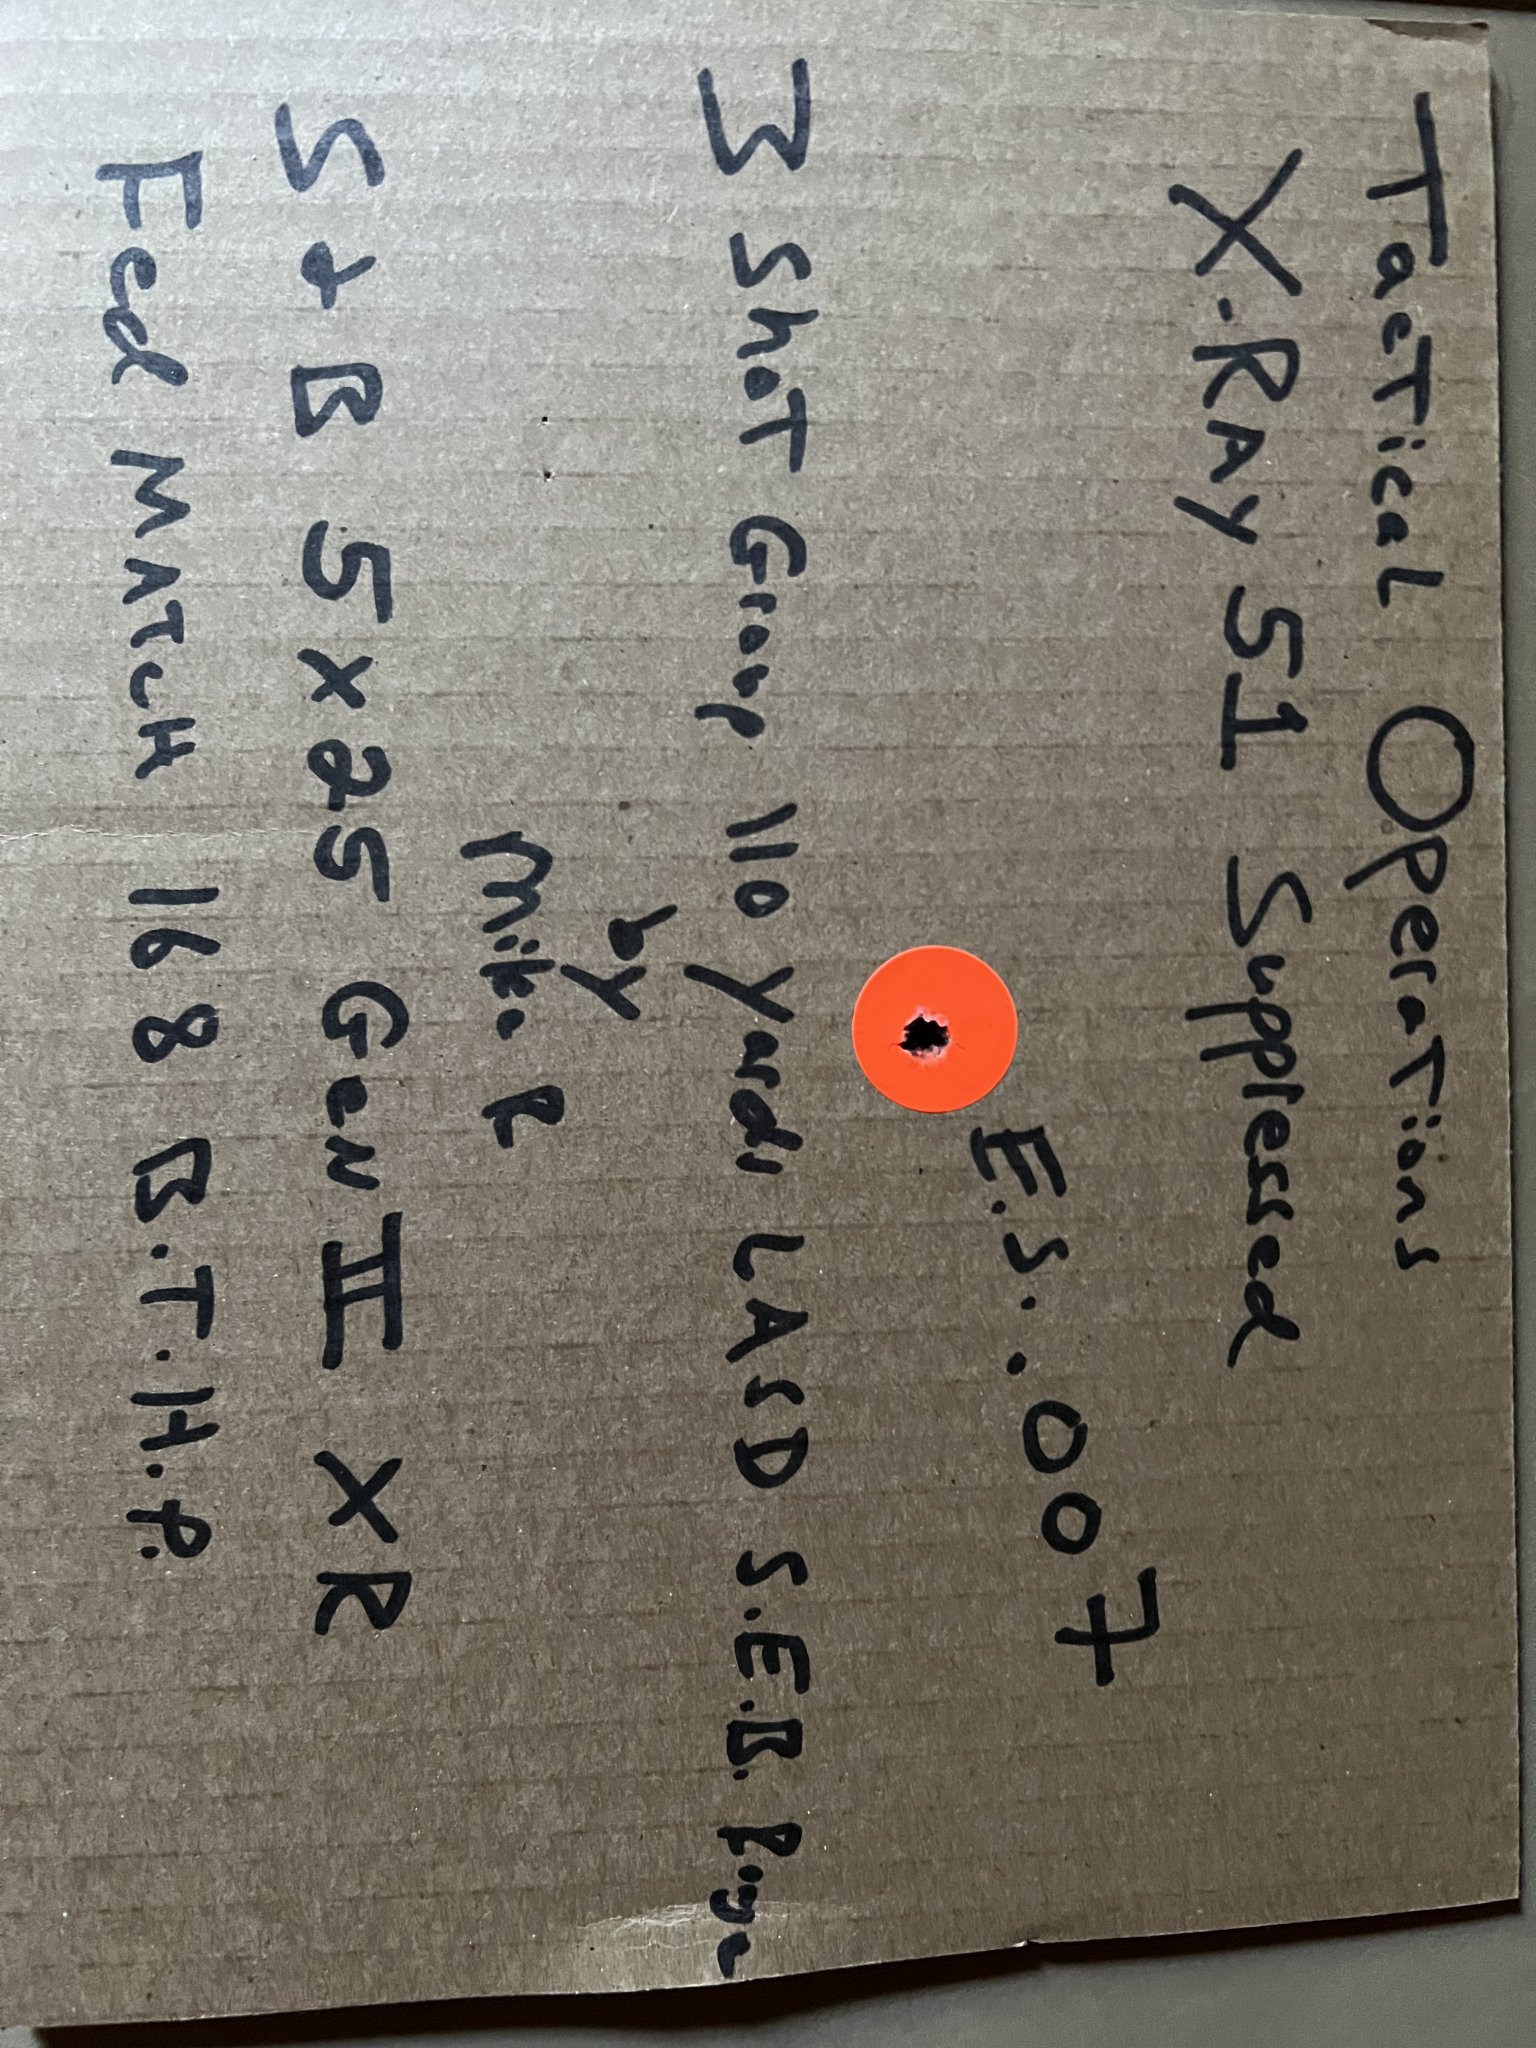 Tactical Operations
X.RAY 51 Suppressed
E.S. .007
3 Shot Group 110 Yards LASD S.E.B. Range
by
Mike R
S & B 5x25 Gen II XR
Fed MATCH 168 B.T.H.P.